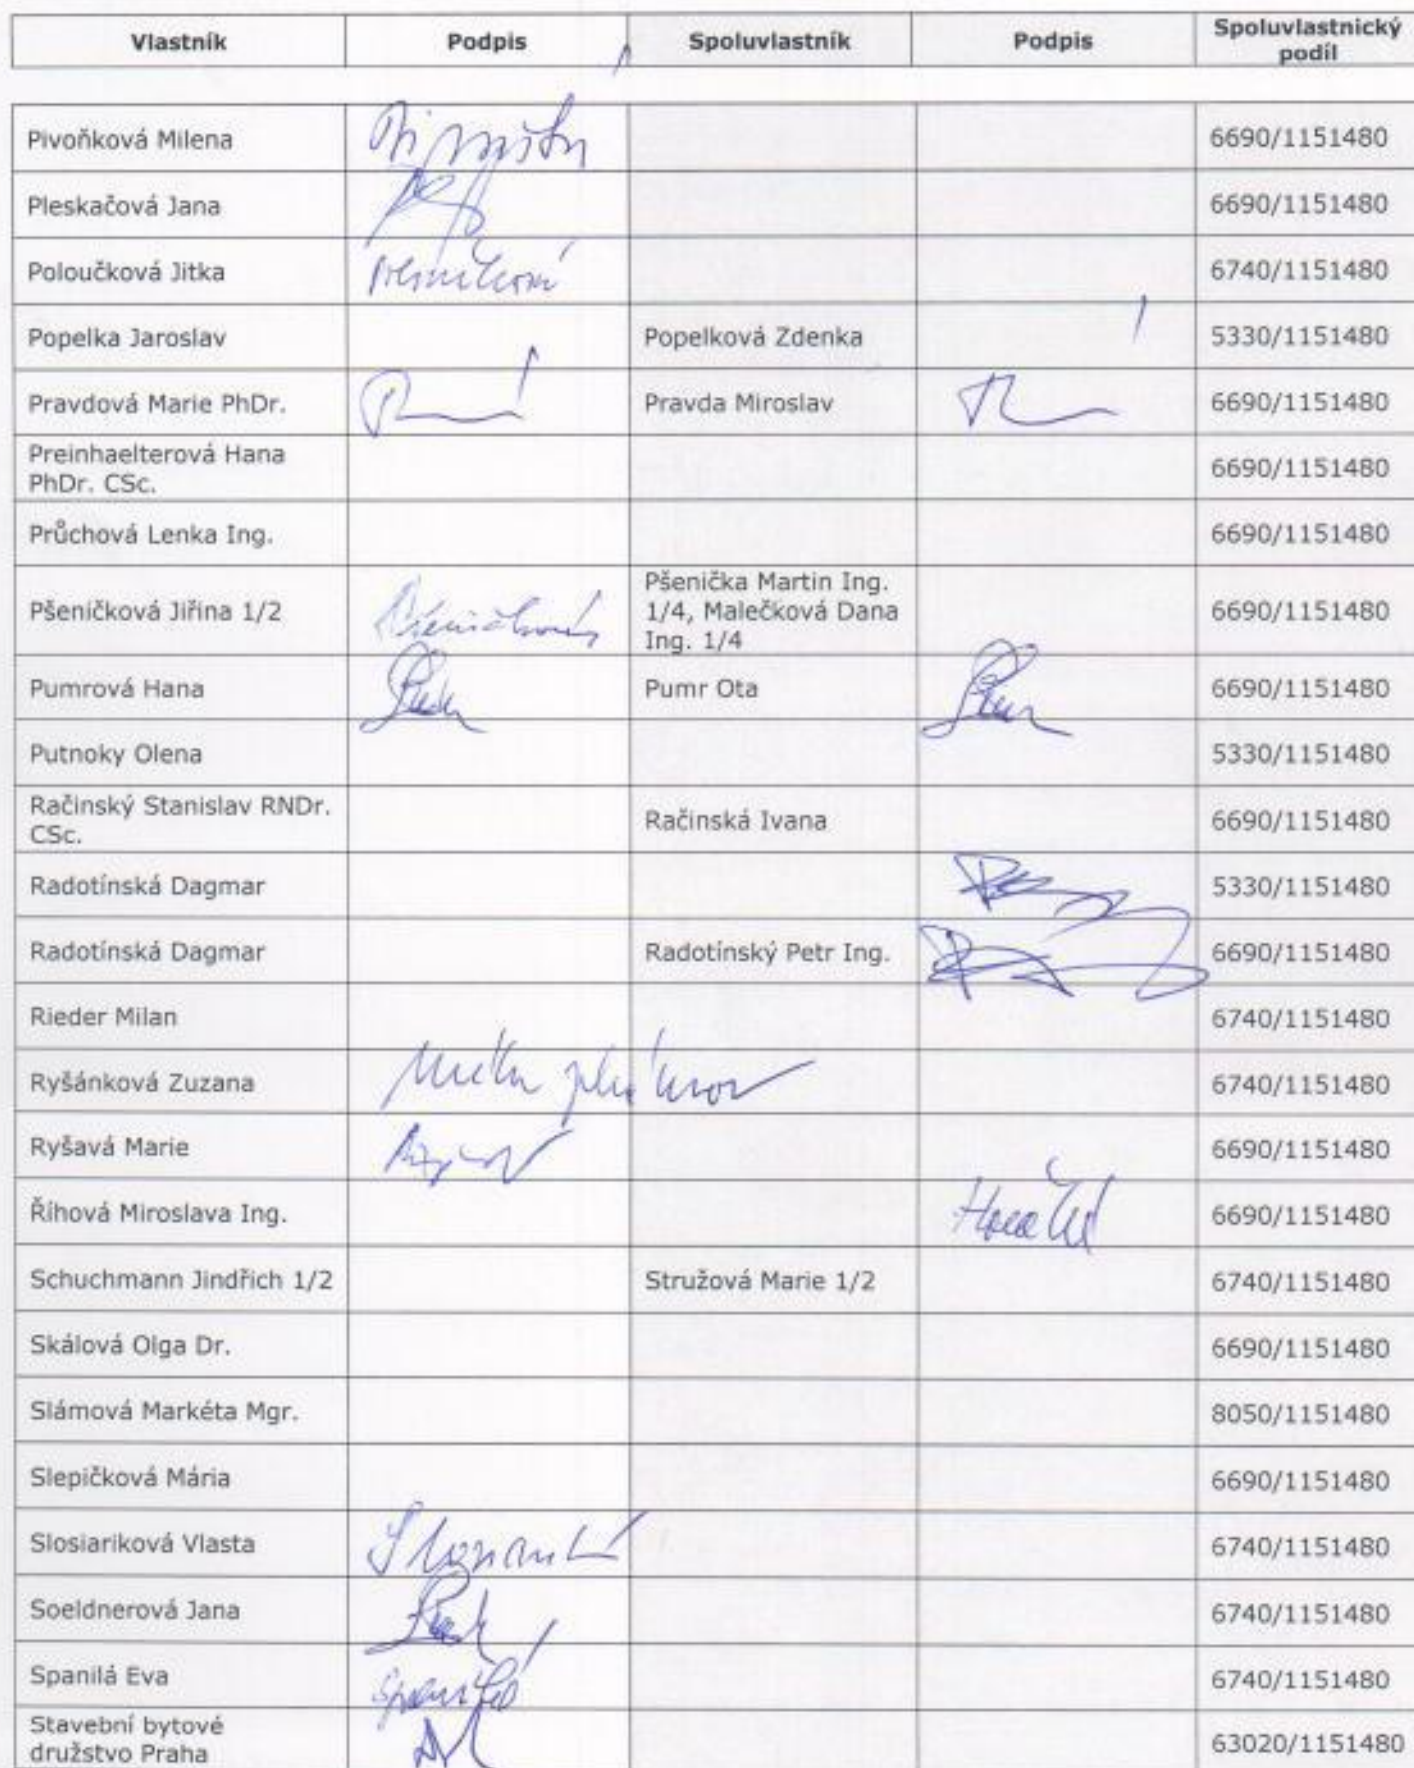 Vlastník Podpis Spoluvlastník Podpis Spoluvlastnický podíl
Pivoňková Milena 6690/1151480
Pleskačová Jana 6690/1151480
Poloučková Jitka 6740/1151480
Popelka Jaroslav Popelková Zdenka 5330/1151480
Pravdová Marie PhDr. Pravda Miroslav 6690/1151480
Preinhaelterová Hana
PhDr. CSc. 6690/1151480
Průchová Lenka Ing. 6690/1151480
Pšeničková Jiřina 1/2 Pšenička Martin Ing.
1/4, Malečková Dana
Ing. 1/4 6690/1151480
Pumrová Hana Pumr Ota 6690/1151480
Putnoky Olena 5330/1151480
Račinský Stanislav RNDr.
CSc. Račinská Ivana 6690/1151480
Radotínská Dagmar 5330/1151480
Radotínská Dagmar Radotínský Petr Ing. 6690/1151480
Rieder Milan 6740/1151480
Ryšánková Zuzana 6740/1151480
Ryšavá Marie 6690/1151480
Říhová Miroslava Ing. 6690/1151480
Schuchmann Jindřich 1/2 Stružová Marie 1/2 6740/1151480
Skálová Olga Dr. 6690/1151480
Slámová Markéta Mgr. 8050/1151480
Slepičková Mária 6690/1151480
Slosiariková Vlasta 6740/1151480
Soeldnerová Jana 6740/1151480
Spanilá Eva 6740/1151480
Stavební bytové
družstvo Praha 63020/1151480